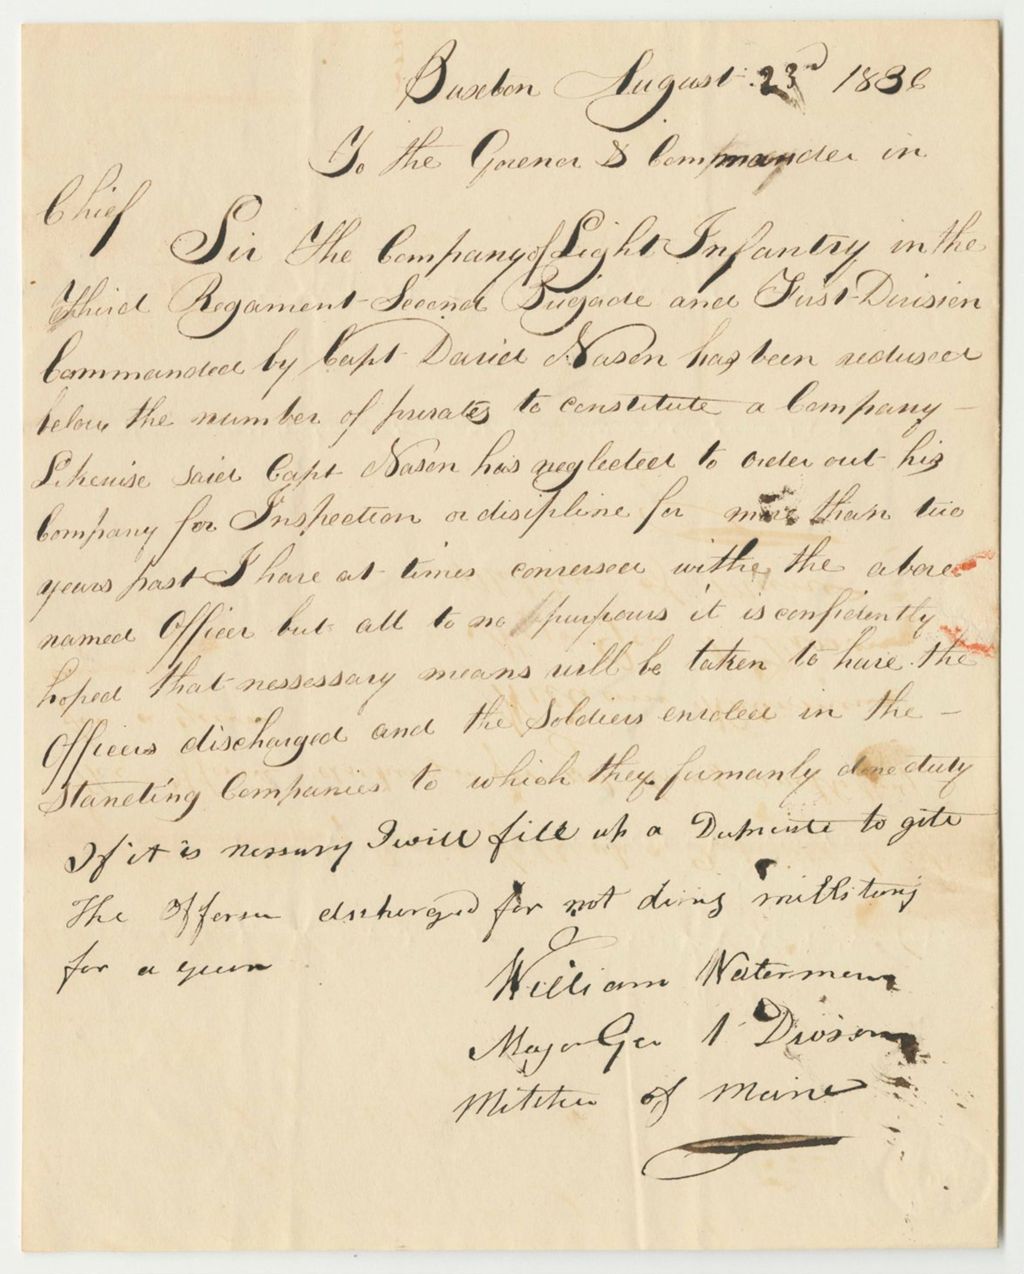 Buxton August 23rd 1836
To the Govenor & Commander in
Chief
Sir The Company of Light Infantry in the
Third Regament Second Brigade and First Division
Commanded by Capt David Nason has been reduced
below the number of privates to constitute a Company –
Likewise said Capt Nason has neglected to order out his
Company for Inspection or disipline for more than two
years past I have at times conversed withe the above
named Officer but all to no purpours it is confidently
hoped that nessessary means will be taken to have the
Officers discharged and the Soldiers enroled in the –
Standing Companies to which they formanly done duty
If it is nersury I will fill up a to gite
The discharged for not doing
for a year
William Waterman
Major Gen 1 Divison
of Maine